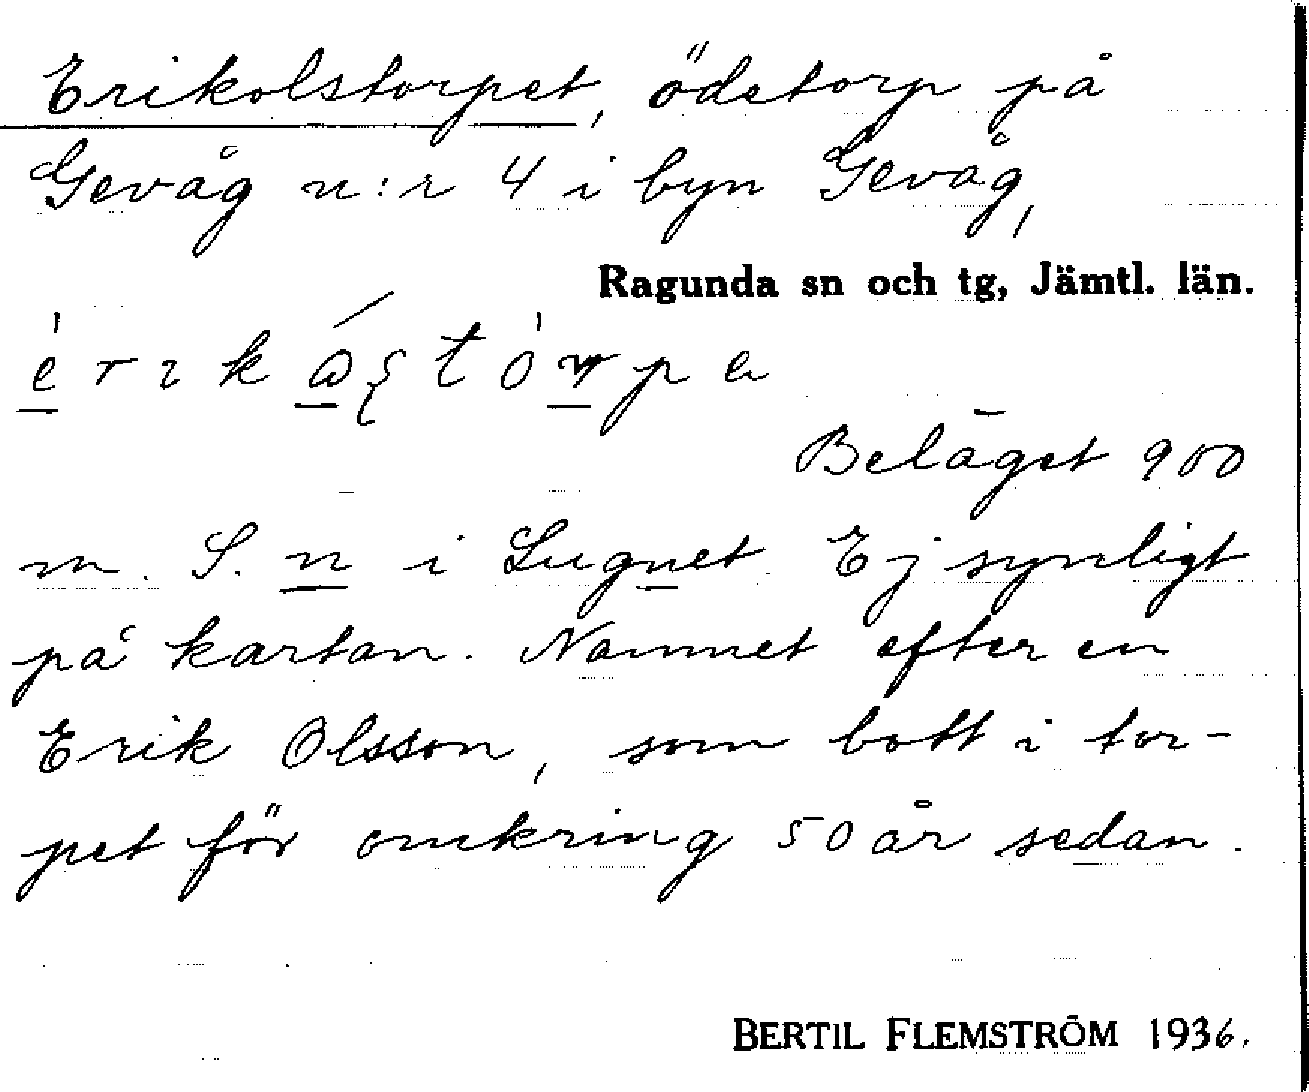 Erikolstorpet, ödetorp på
Gevåg n:r 4 i byn Gevåg,
Ragunda sn och tg, Jämtl. län.
Beläget 900
m. S. n i Lugnet. Ej synligt
på kartan. Namnet efter en
Erik Olsson, som bott i tor-
pet för omkring 50 år sedan.
BERTIL FLEMSTRÖM 1936.